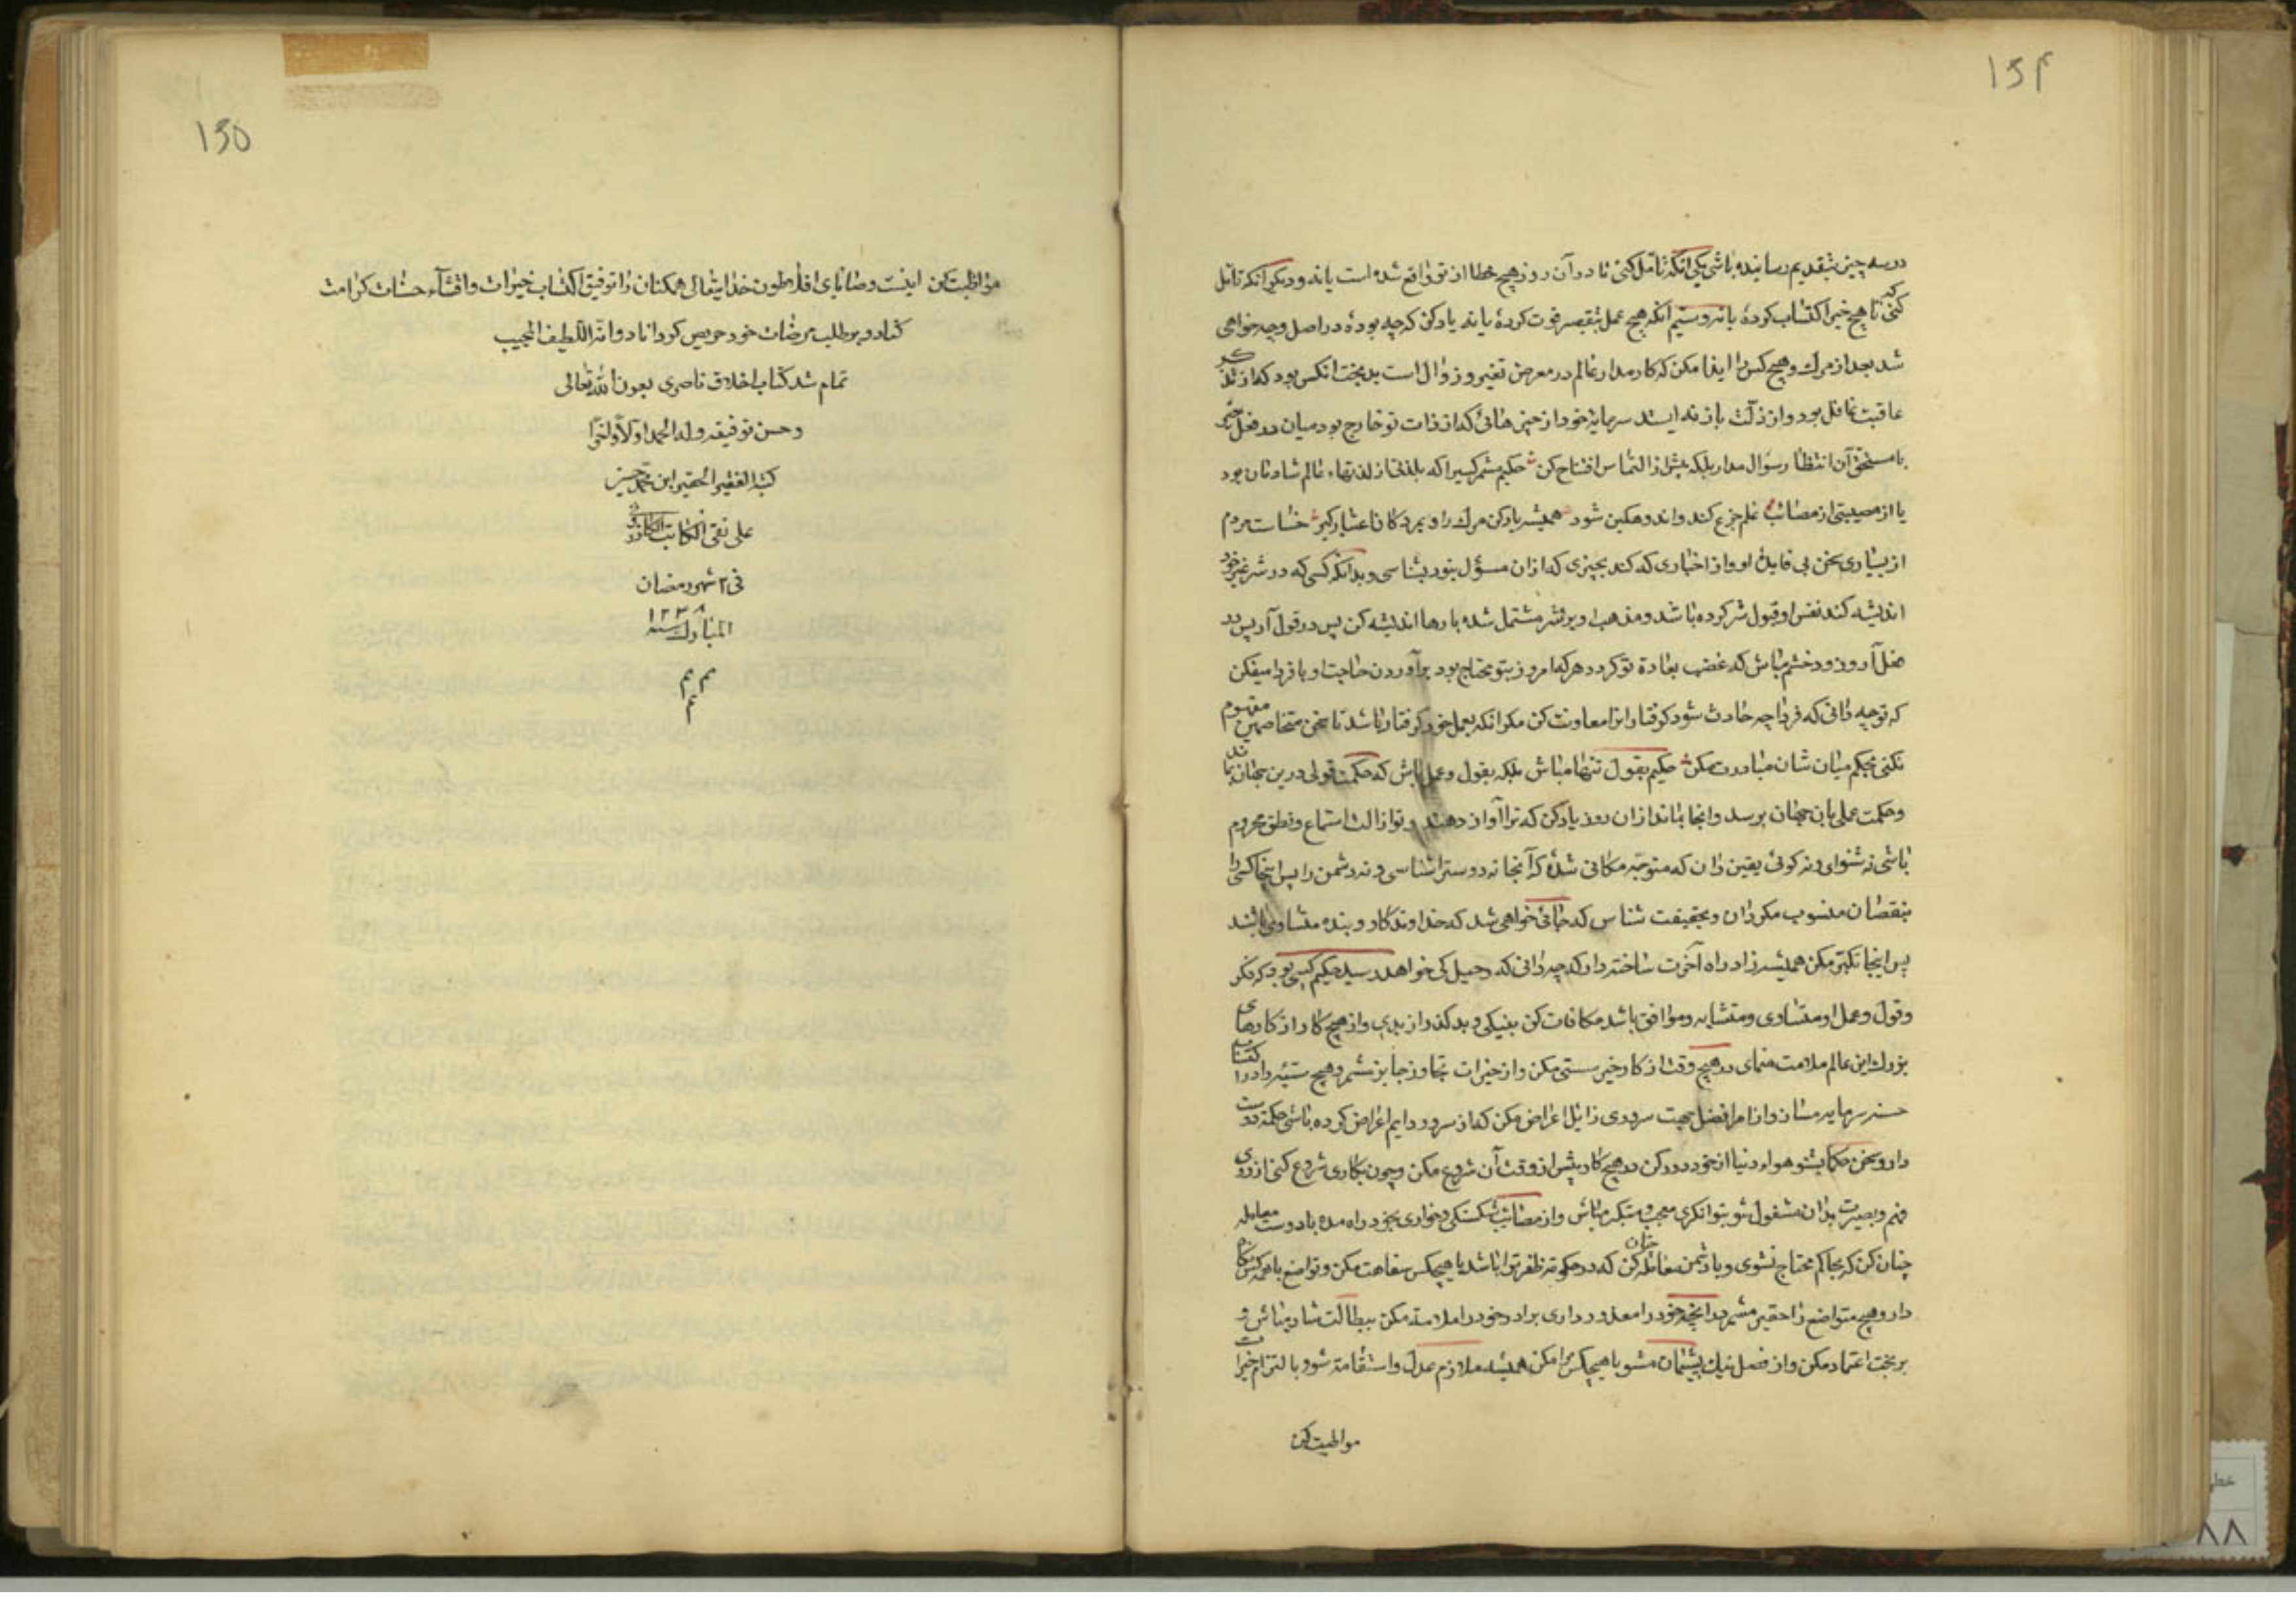 ۱۵۴
در سه چیز بتقدیم رسانیده باشی یکی آنکه تامل کنی تا در آن روز هیچ خطا از تو واقع شده است یا نه و دیگر آنکه تامل
کنی که تا هیچ خیر اکتساب کرده یا نه و سیم آنکه هیچ عمل بتقصیر فوت کرده یا نه یاد کن که چه بوده در اصل و چه خواهی
شد بعد از مرگ و هیچ کس را ایذا مکن که کار مدار عالم در معرض تغیر و زوال است بدبخت آنکس بود که از تذکر
عاقبت غافل بود و از زلت باز نه ایستد سرمایه خود از چیزهائی که از ذات تو خارج بود میان در فعل خیر
با مستحق آن انتظار سؤال مدار بلکه پیش از التماس افتتاح کن حکیم مشمر کسیرا که بلذتی از لذتهاء عالم شادمان بود
یا از مصیبتی از مصائب عالم جزع کند و اندوهگین شود همیشه یاد کن مرگ را و بمردگان اعتبار گیر خساست مردم
از بسیاری سخن بی فایده او و از اخباری که کند بچیزی که از آن مسؤل نبود بشناسی و بدانکه کسی که در شر غیر خود
اندیشه کند نفس او قبول شر کرده باشد و مذهب او بر شر مشتمل شده بارها اندیشه کن پس در قول آر پس در
فعل آر و زود خشم مباش که غضب بعادة تو گردد هر که امروز بتو محتاج بود برآوردن حاجت او با فردا میفکن
که تو چه دانی که فردا چه حادث شود گرفتار انرا معاونت کن مگر آنکه بعمل خود گرفتار باشد تا سخن متخاصمین مفهوم
نکنی بحکم میان شان مبادرت مکن حکیم بقول تنها مباش بلکه بقول و عمل باش که حکمت قولی درین جهان بماند
و حکمت عملی بان جهان برسد و انجا بماند از ان روز یاد کن که ترا آواز دهند و تو از الت استماع و نطق محروم
باشی نه شنوای و نه گوئی یقین دان که متوجه مکانی شده که آنجا نه دوسترا شناسی و نه دشمن را پس اینجا کسی را
بنقصان منسوب مگردان و بحقیقت شناس که جائی خواهی شد که خداوندگار و بنده متساوی باشند
پس اینجا تکبر مکن همیشه زاد راه آخرت ساخته دار که چه دانی که رحیل کی خواهد رسید حکیم کسی بود که فکر
و قول و عمل او متساوی و متشابه و موافق باشد مکافات کن بنیکی و بدگذر از بدی و از هیچ کار از کارهای
بزرگ این عالم ملامت منمای در هیچ وقت از کار خیر سستی مکن و از خیرات تجاوز جایز مشمر و هیچ سیئه را در اکتساب
حسنه سرمایه مساز و از امر افضل بجهت سروری زایل اعراض مکن که از سرور دایم اعراض کرده باشی حکمة دوست
دار و سخن حکما بشنو هواء دنیا از خود دور کن در هیچ کار پیش از وقت آن شروع مکن و چون بکاری شروع کنی از روی
فهم و بصیرت بدان مشغول شو بتوانگری معجب و متکبر مباش و از مصائب شکستگی و خواری بخود راه مده با دوست معامله
چنان کن که بحاکم محتاج نشوی و با دشمن معامله چنان کن که در حکومة ظفر ترا باشد با هیچکس سفاهت مکن و تواضع با همه کس نگاه
دار و هیچ متواضع را حقیر مشمر بدانچه خود را معذور داری برادر خود را ملامت مکن ببطالت شاد مباش و
بر بخت اعتماد مکن و از فعل نیک پشیمان مشو با هیچکس مرا مکن همیشه ملازم عدل و استقامة شو و بالتزام خیرات
مواظبت کن
۱۵۵
مواظبت کن اینست وصایای افلاطون خدایتعالی همکنان را توفیق اکتساب خیرات و اقتناء حسنات کرامت
کناد و بر طلب مرضات خود حریص گرداناد وانه اللطیف المجیب
تمام شد کتاب اخلاق ناصری بعون الله تعالی
و حسن توفیقه و له الحمد اولا و اخرا
کتبه الفقیر الحقیر ابن محمد حسین
علی نقی الکاتب
فی ۲ شهر رمضان
المبارک سنه ۱۲۳۸
م م
م